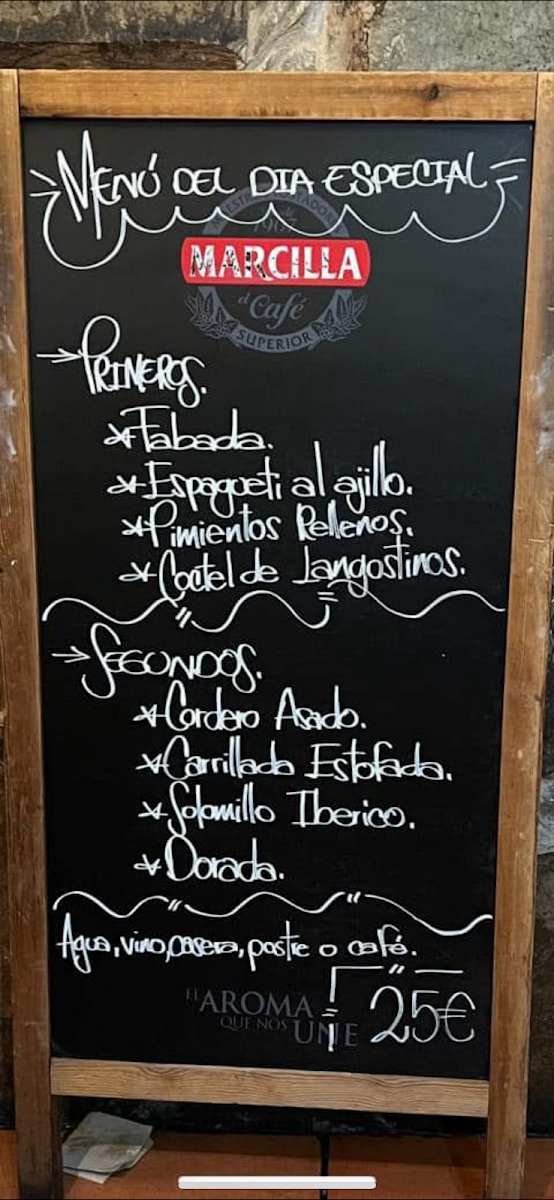 MENÚ DEL DIA ESPECIAL
MARCILLA
el Café
SUPERIOR
PRIMEROS.
*Fabada.
*Espagueti al ajillo.
*Pimientos Rellenos.
*Coctel de Langostinos.
SEGUNDOS.
*Cordero Asado.
*Carrillada Estofada.
*Solomillo Iberico.
*Dorada.
Agua, vino, casera, postre o café.
EL AROMA
QUE NOS UNE
25€